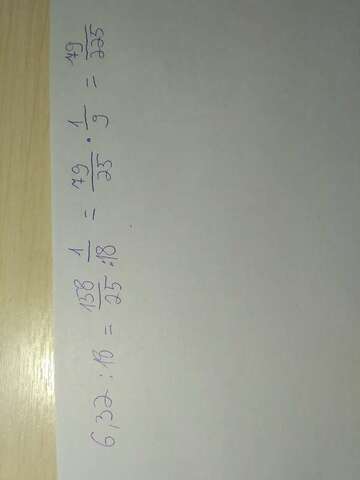 6,32 : 18 = 158/25 : 1/18 = 79/25 · 1/9 = 79/225